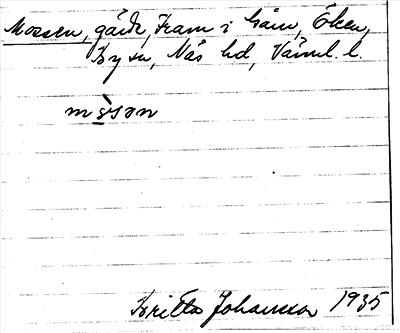 Mossen, gård, Fram i Gåm, Öken,
By sn, Näs hd, Värml. l.
mɷ̀sən
Britta Johansson 1935